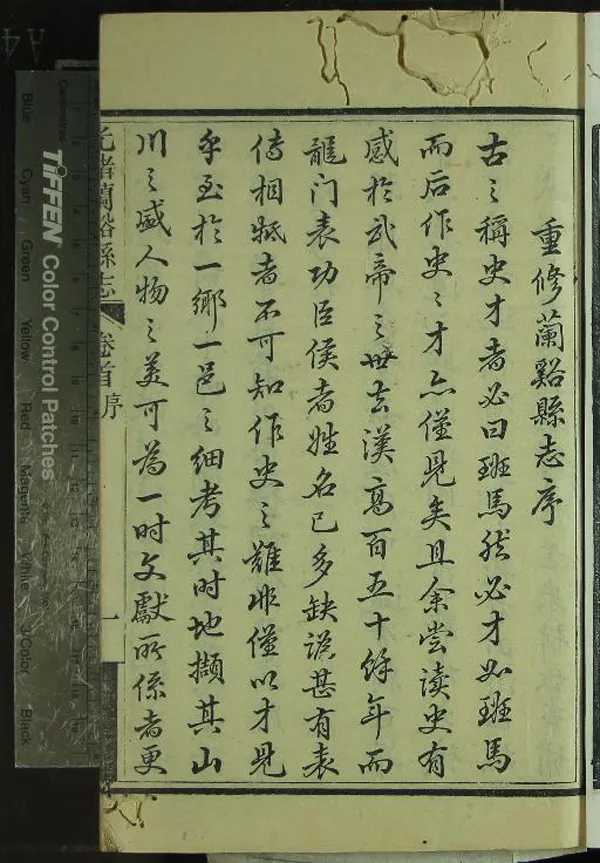 重修蘭谿縣志序
古之稱史才者必曰班馬然必才如班馬
而后作史之才亦僅見矣且余嘗读史有
感於武帝之世去漢高百五十餘年而
龍门表功臣侯者姓名已多缺譌甚有表
传相牴者不可知作史之難非僅以才見
乎至於一鄉一邑之细考其时地擷其山
川之盛人物之美可為一时文獻所係者更
光緒蘭谿縣志
卷首
序
一
TIFFEN Color Control Patches
Blue
Cyan
Green
Yellow
Red
Magenta
White
3/Color
Black